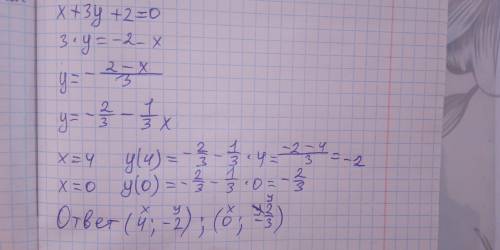 x+3y+2=0
3·y=-2-x
y=-\frac{2-x}{3}
y=-\frac{2}{3}-\frac{1}{3}x
x=4 y(4)=-\frac{2}{3}-\frac{1}{3}·4=\frac{-2-4}{3}=-2
x=0 y(0)=-\frac{2}{3}-\frac{1}{3}·0=-\frac{2}{3}
Ответ (4;-2);(0;-\frac{2}{3})